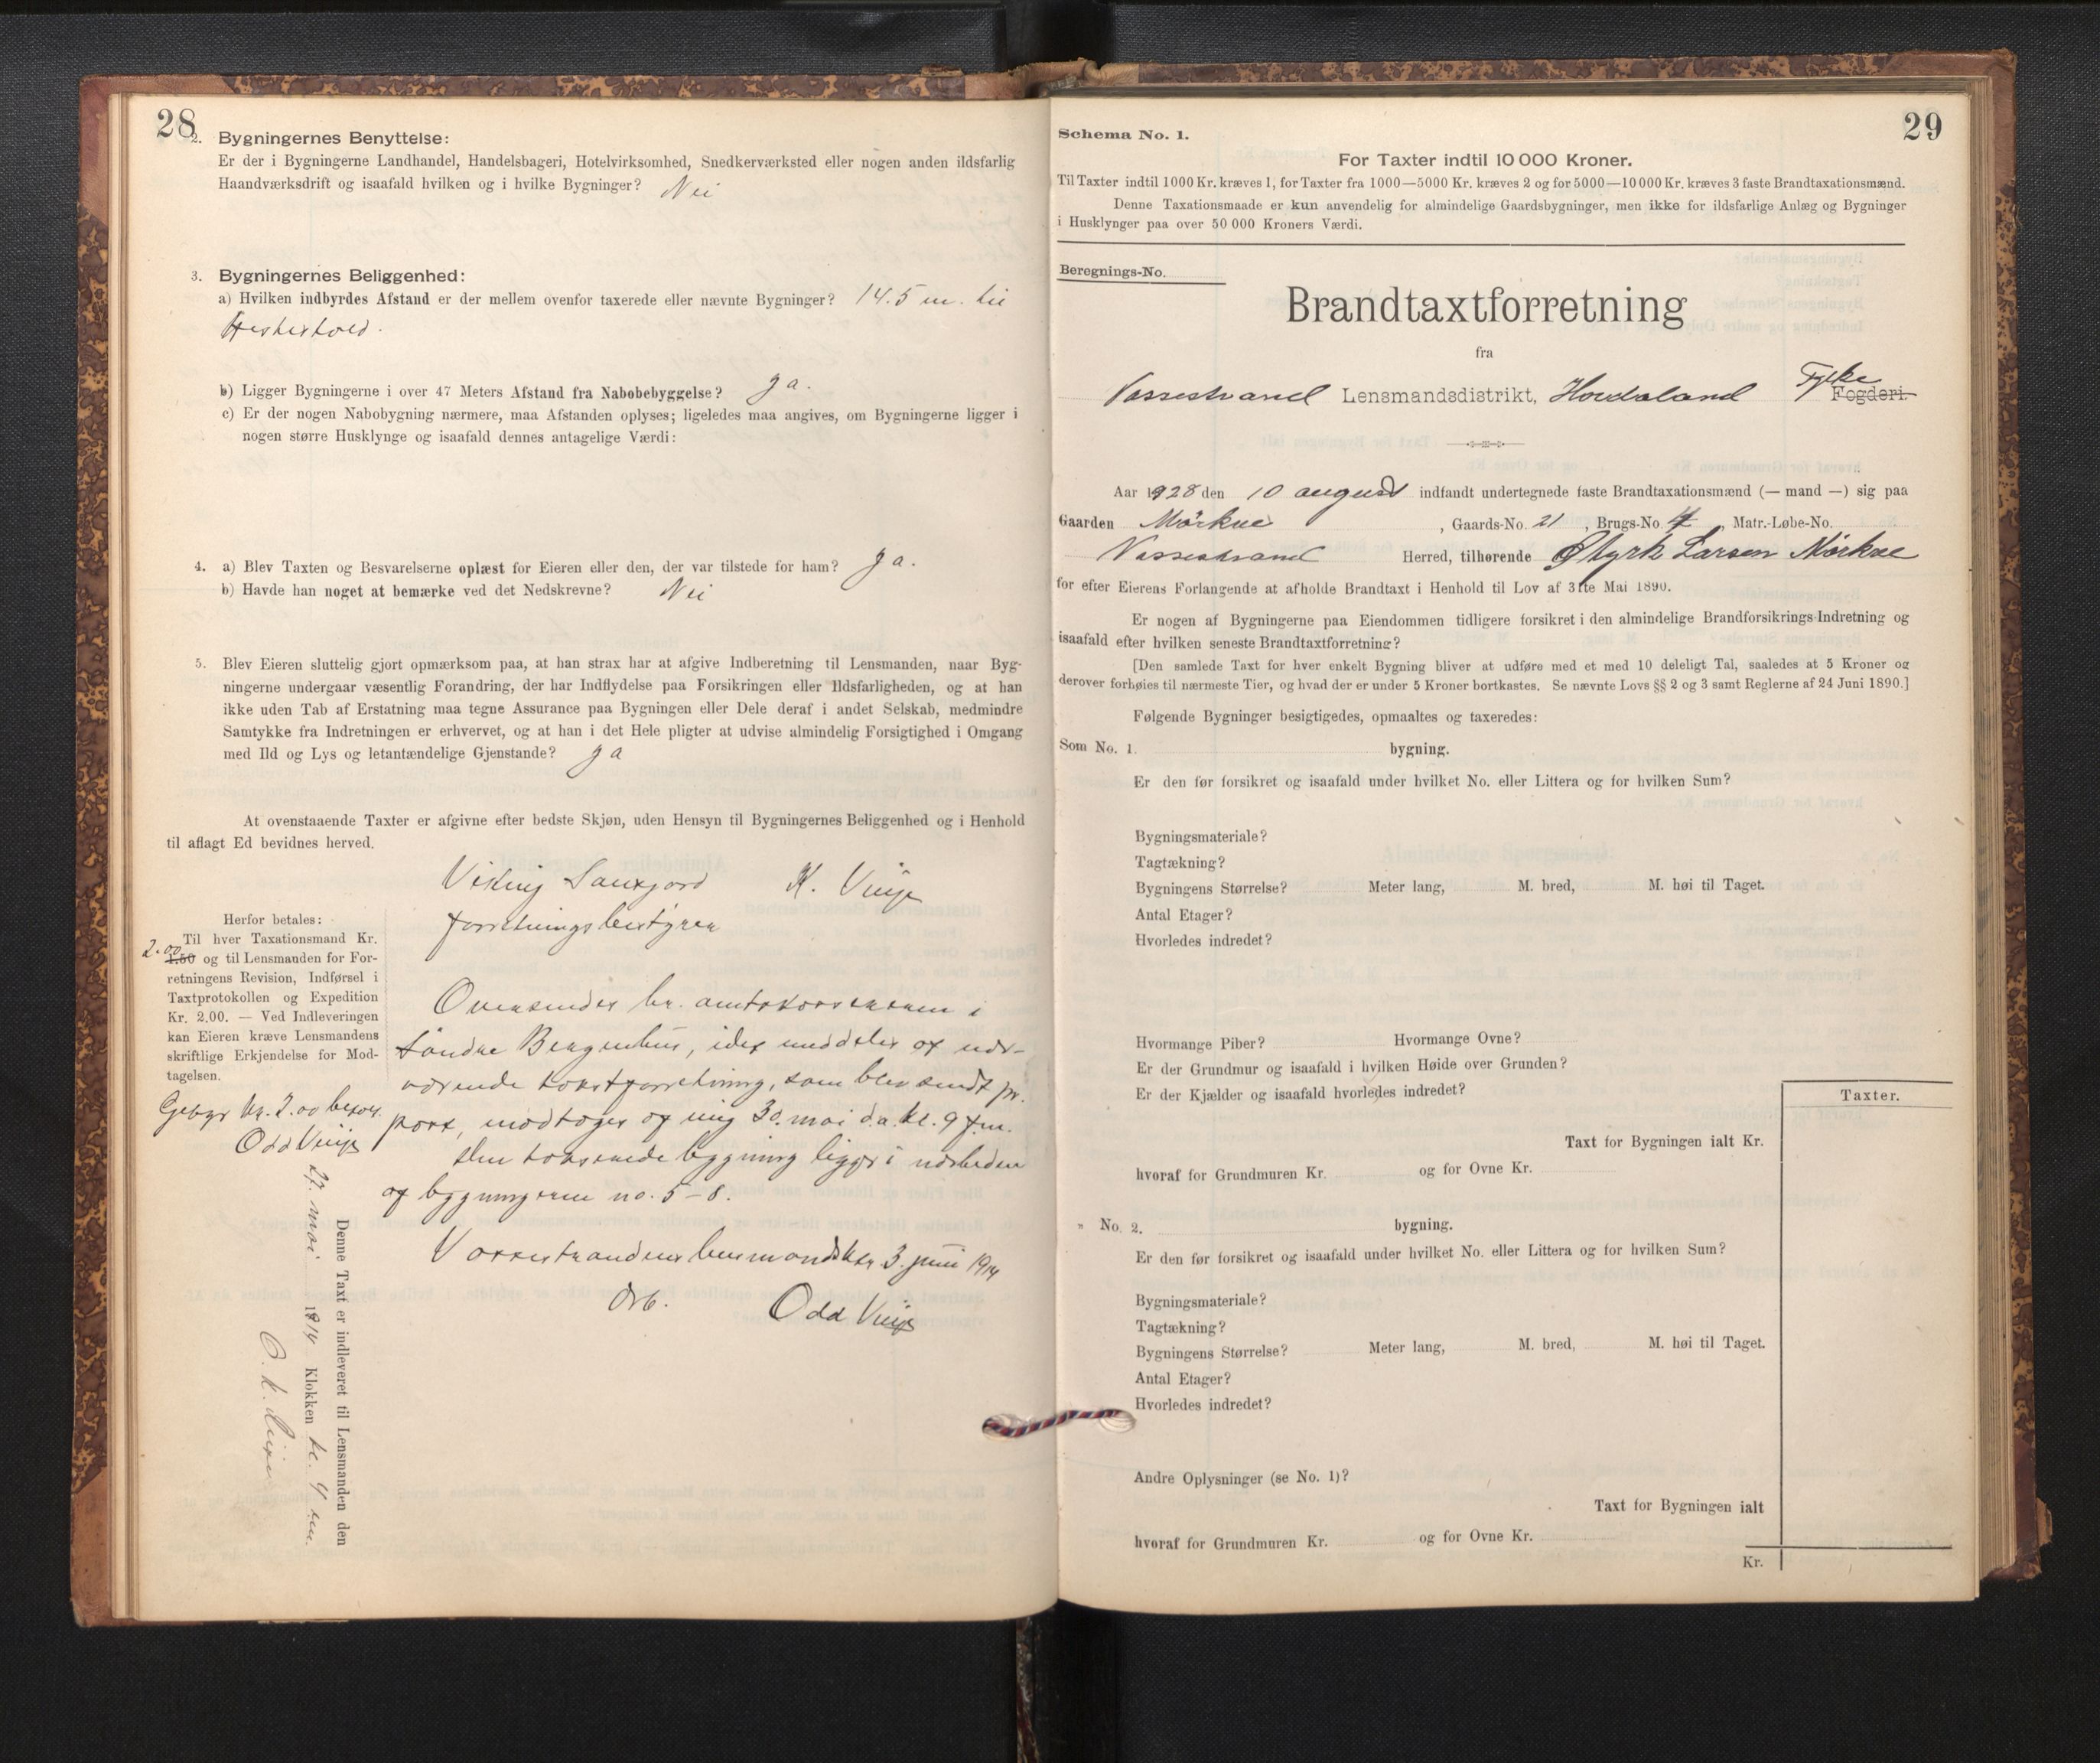 28
2. Bygningernes Benyttelse:
Er der i Bygningerne Landhandel, Handelsbageri, Hotelvirksomhed, Snedkerværksted eller nogen anden ildsfarlig
Haandværksdrift og isaafald hvilken og i hvilke Bygninger? Nei
3. Bygningernes Beliggenhed:
a) Hvilken indbyrdes Afstand er der mellem ovenfor taxerede eller nævnte Bygninger? 14.5 m. til
Hestestald.
b) Ligger Bygningerne i over 47 Meters Afstand fra Nabobebyggelse? ja.
c) Er der nogen Nabobygning nærmere, maa Afstanden oplyses; ligeledes maa angives, om Bygningerne ligger i
nogen større Husklynge og isaafald dennes antagelige Værdi:
4. a) Blev Taxten og Besvarelserne oplæst for Eieren eller den, der var tilstede for ham? ja.
b) Havde han noget at bemærke ved det Nedskrevne? Nei
5. Blev Eieren sluttelig gjort opmærksom paa, at han strax har at afgive Indberetning til Lensmanden, naar Byg-
ningerne undergaar væsentlig Forandring, der har Indflydelse paa Forsikringen eller Ildsfarligheden, og at han
ikke uden Tab af Erstatning maa tegne Assurance paa Bygningen eller Dele deraf i andet Selskab, medmindre
Samtykke fra Indretningen er erhvervet, og at han i det Hele pligter at udvise almindelig Forsigtighed i Omgang
med Ild og Lys og letantændelige Gjenstande? ja
At ovenstaaende Taxter er afgivne efter bedste Skjøn, uden Hensyn til Bygningernes Beliggenhed og i Henhold
til aflagt Ed bevidnes herved.
K. Vinje
forretningsbestyrer
Herfor betales:
Til hver Taxationsmand Kr.
2.00 1.50 og til Lensmanden for For-
retningens Revision, Indførsel i
Taxtprotokollen og Expedition
Kr. 2.00. — Ved Indleveringen
kan Eieren kræve Lensmandens
skriftlige Erkjendelse for Mod-
tagelsen.
Gebyr kr. 2.00 betalt.
Odd Vinje
Oversendes hr. amtskassereren i
Søndre Bergenhus, idet meddeles at nær-
værende takstforretning, som blev sendt pr.
post, modtoges af mig 30. mai d.a. kl. 9 f.m.
Den takserede bygning ligger i nærheden
af bygningerne no. 5-8.
Vossestrandens lensmandsktr. 3. juni 1914
Odd Vinje
Denne Taxt er indleveret til Lensmanden den
27. mai 1914 Klokken kl. 4 em.
29
Schema No. 1.
For Taxter indtil 10 000 Kroner.
Til Taxter indtil 1000 Kr. kræves 1, for Taxter fra 1000—5000 Kr. kræves 2 og for 5000—10 000 Kr. kræves 3 faste Brandtaxationsmænd.
Denne Taxationsmaade er kun anvendelig for almindelige Gaardsbygninger, men ikke for ildsfarlige Anlæg og Bygninger
i Husklynger paa over 50 000 Kroners Værdi.
Beregnings-No.
Brandtaxtforretning
fra
Vossestrand Lensmandsdistrikt, Hordaland Fylke Fogderi.
Aar 1928 den 10 august indfandt undertegnede faste Brandtaxationsmænd (— mand —) sig paa
Gaarden Mörkve, Gaards-No. 21, Brugs-No. 4, Matr.-Løbe-No.
Vossestrand Herred, tilhørende Styrk Larsen Mörkve
for efter Eierens Forlangende at afholde Brandtaxt i Henhold til Lov af 31te Mai 1890.
Er nogen af Bygningerne paa Eiendommen tidligere forsikret i den almindelige Brandforsikrings-Indretning og
isaafald efter hvilken seneste Brandtaxtforretning?
[Den samlede Taxt for hver enkelt Bygning bliver at udføre med et med 10 deleligt Tal, saaledes at 5 Kroner og
derover forhøies til nærmeste Tier, og hvad der er under 5 Kroner bortkastes. Se nævnte Lovs §§ 2 og 3 samt Reglerne af 24 Juni 1890.]
Følgende Bygninger besigtigedes, opmaaltes og taxeredes:
Som No. 1. bygning.
Er den før forsikret og isaafald under hvilket No. eller Littera og for hvilken Sum?
Bygningsmateriale?
Tagtækning?
Bygningens Størrelse? Meter lang, M. bred, M. høi til Taget.
Antal Etager?
Hvorledes indredet?
Hvormange Piber? Hvormange Ovne?
Er der Grundmur og isaafald i hvilken Høide over Grunden?
Er der Kjælder og isaafald hvorledes indredet?
Taxter.
Taxt for Bygningen ialt Kr.
hvoraf for Grundmuren Kr. og for Ovne Kr.
" No. 2. bygning.
Er den før forsikret og isaafald under hvilket No. eller Littera og for hvilken Sum?
Bygningsmateriale?
Tagtækning?
Bygningens Størrelse? Meter lang, M. bred, M. høi til Taget.
Antal Etager?
Hvorledes indredet?
Andre Oplysninger (se No. 1)?
Taxt for Bygningen ialt
hvoraf for Grundmuren Kr. og for Ovne Kr.
Kr.